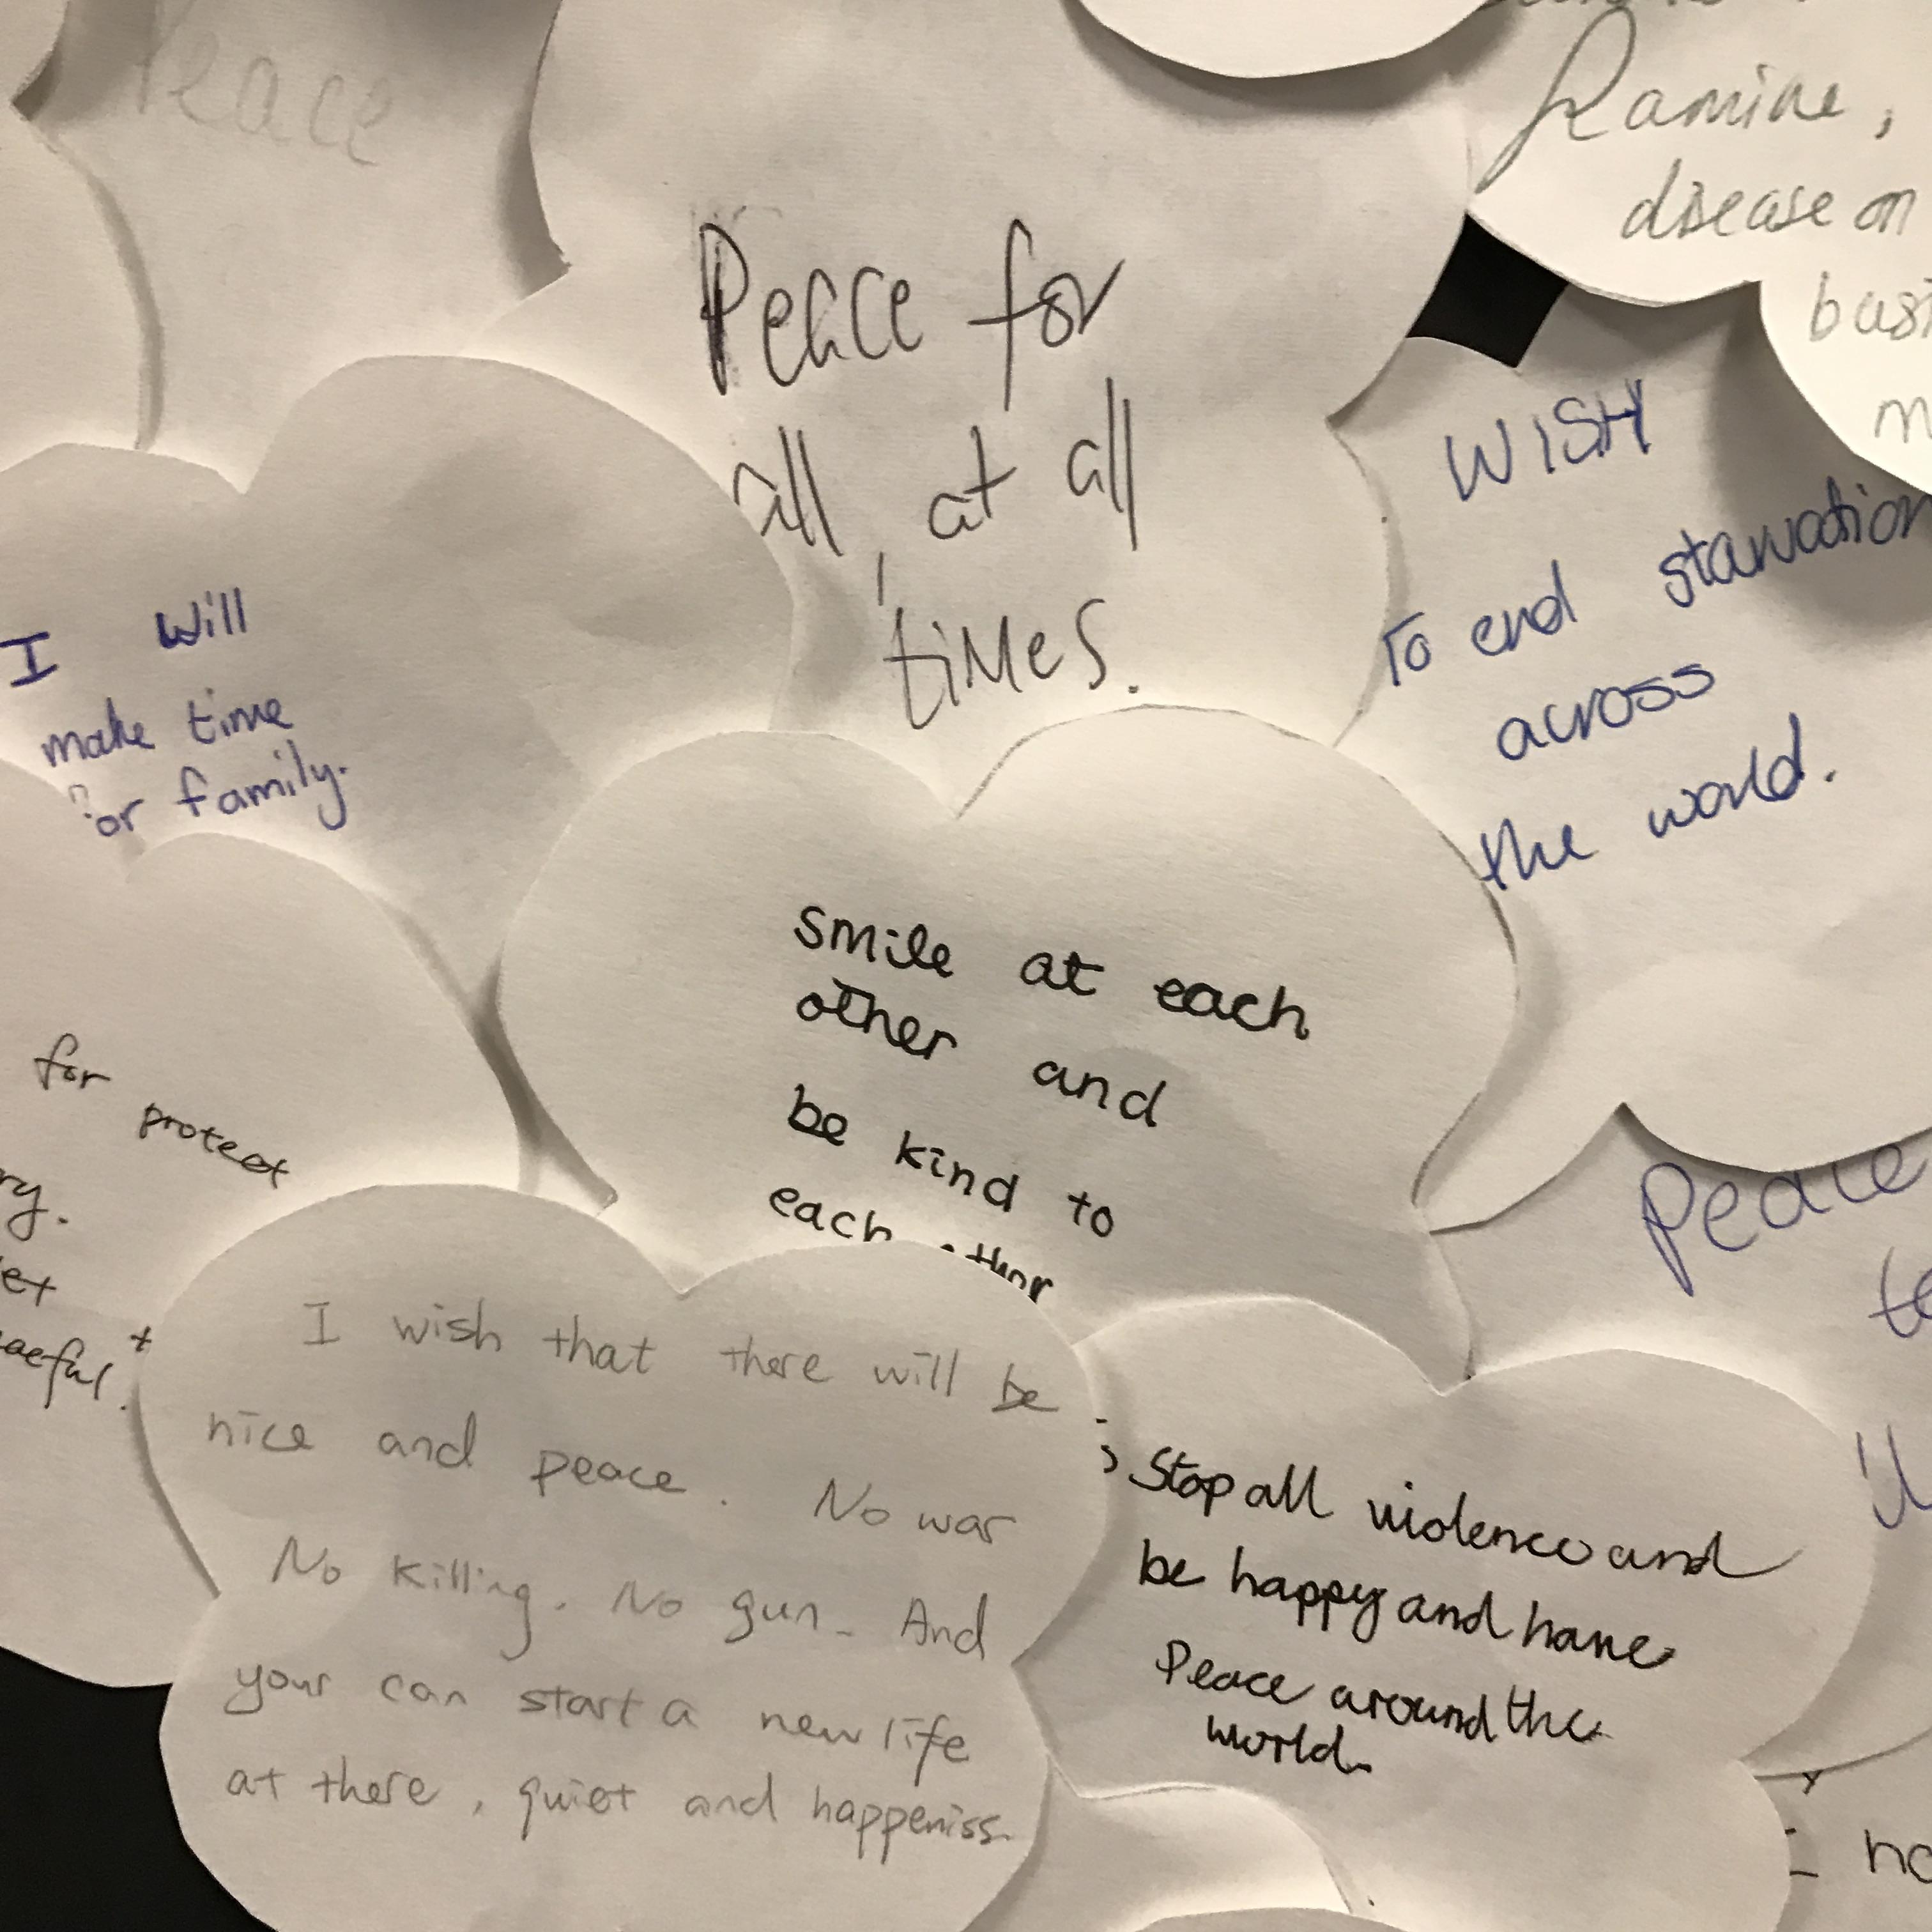 Peace
Peace for
all, at all
times.
Famine,
disease on
WISH
To end starvation
across
the world.
I will
make time
for family.
smile at each
other and
be kind to
each other
for
protect
Peace
I wish that there will be
nice and peace. No war
No killing. No gun. And
your can start a new life
at there, quiet and happeniss
Stop all violence and
be happy and have
Peace around the
world.